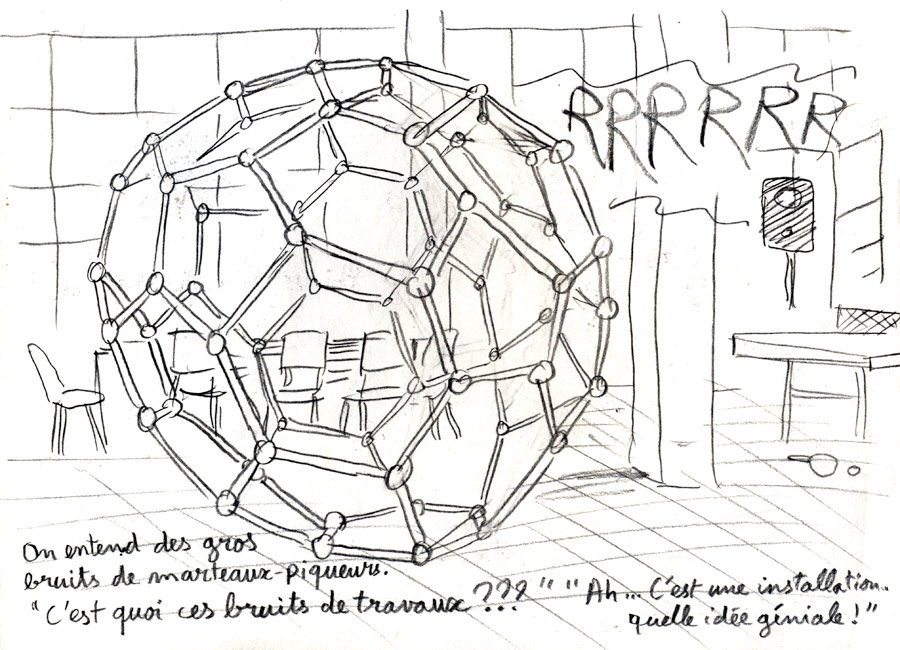 RRRRRR
On entend des gros
bruits de marteaux-piqueurs.
"C'est quoi ces bruits de travaux ???" "Ah... C'est une installation.
quelle idée géniale !"